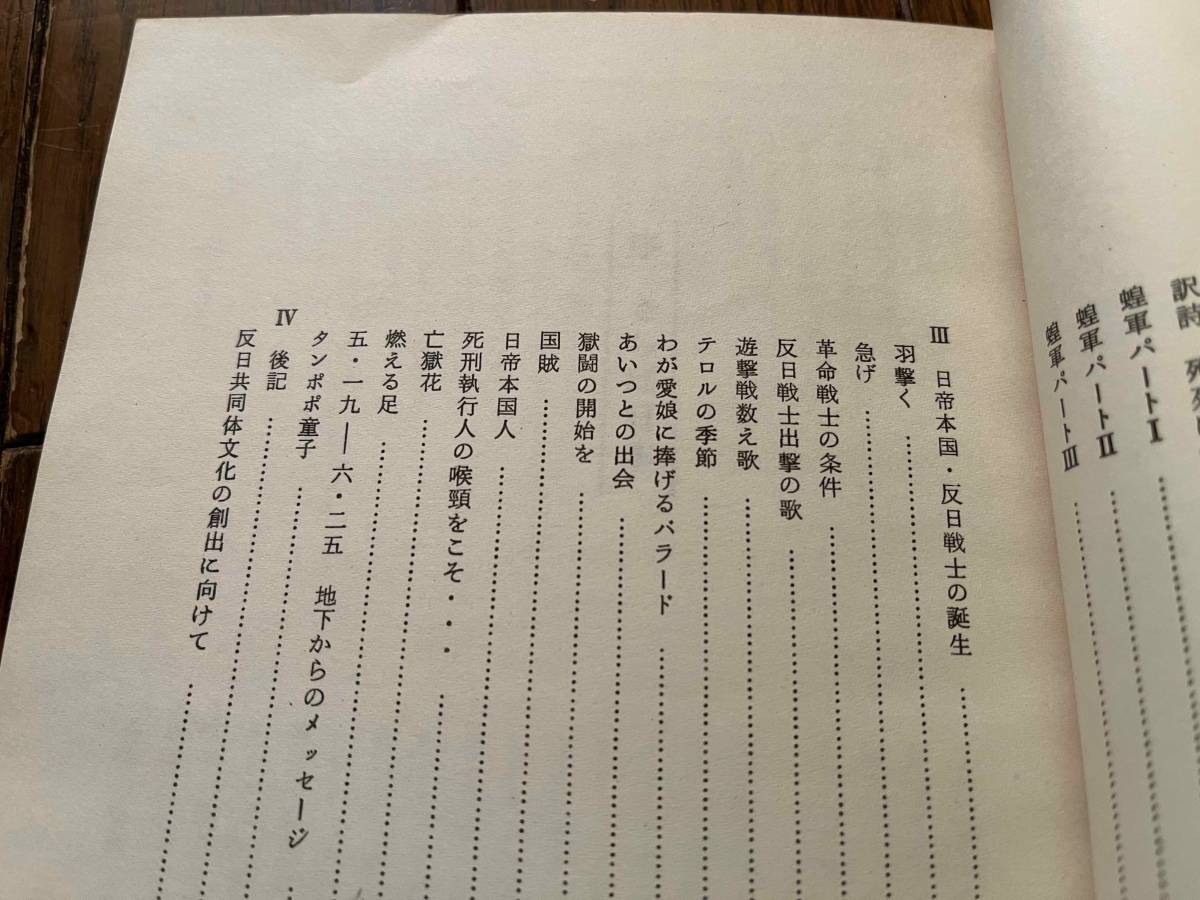 訳詩
蝗軍パートⅠ
蝗軍パートⅡ
蝗軍パートⅢ
Ⅲ 日帝本国・反日戦士の誕生
羽撃く
急げ
革命戦士の条件
反日戦士出撃の歌
遊撃戦数え歌
テロルの季節
わが愛娘に捧げるバラード
あいつとの出会
獄闘の開始を
国賊
日帝本国人
死刑執行人の喉頸をこそ・・・
亡獄花
燃える足
五・一九―六・二五 地下からのメッセージ
タンポポ童子
Ⅳ 後記
反日共同体文化の創出に向けて